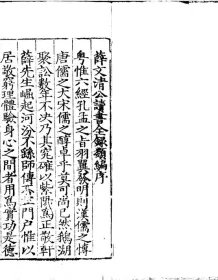 薛文清公讀書全録類編序
粤惟六經孔孟之旨羽翼發明則漢儒之博
唐儒之大宋儒之醇卓乎莫可尚已然鵝湖
聚訟數年不决乃其究確以紫陽爲正敬軒
薛先生崛起河汾不繇師傳不立門戶惟以
居敬窮理體驗身心之間者用爲實功是德